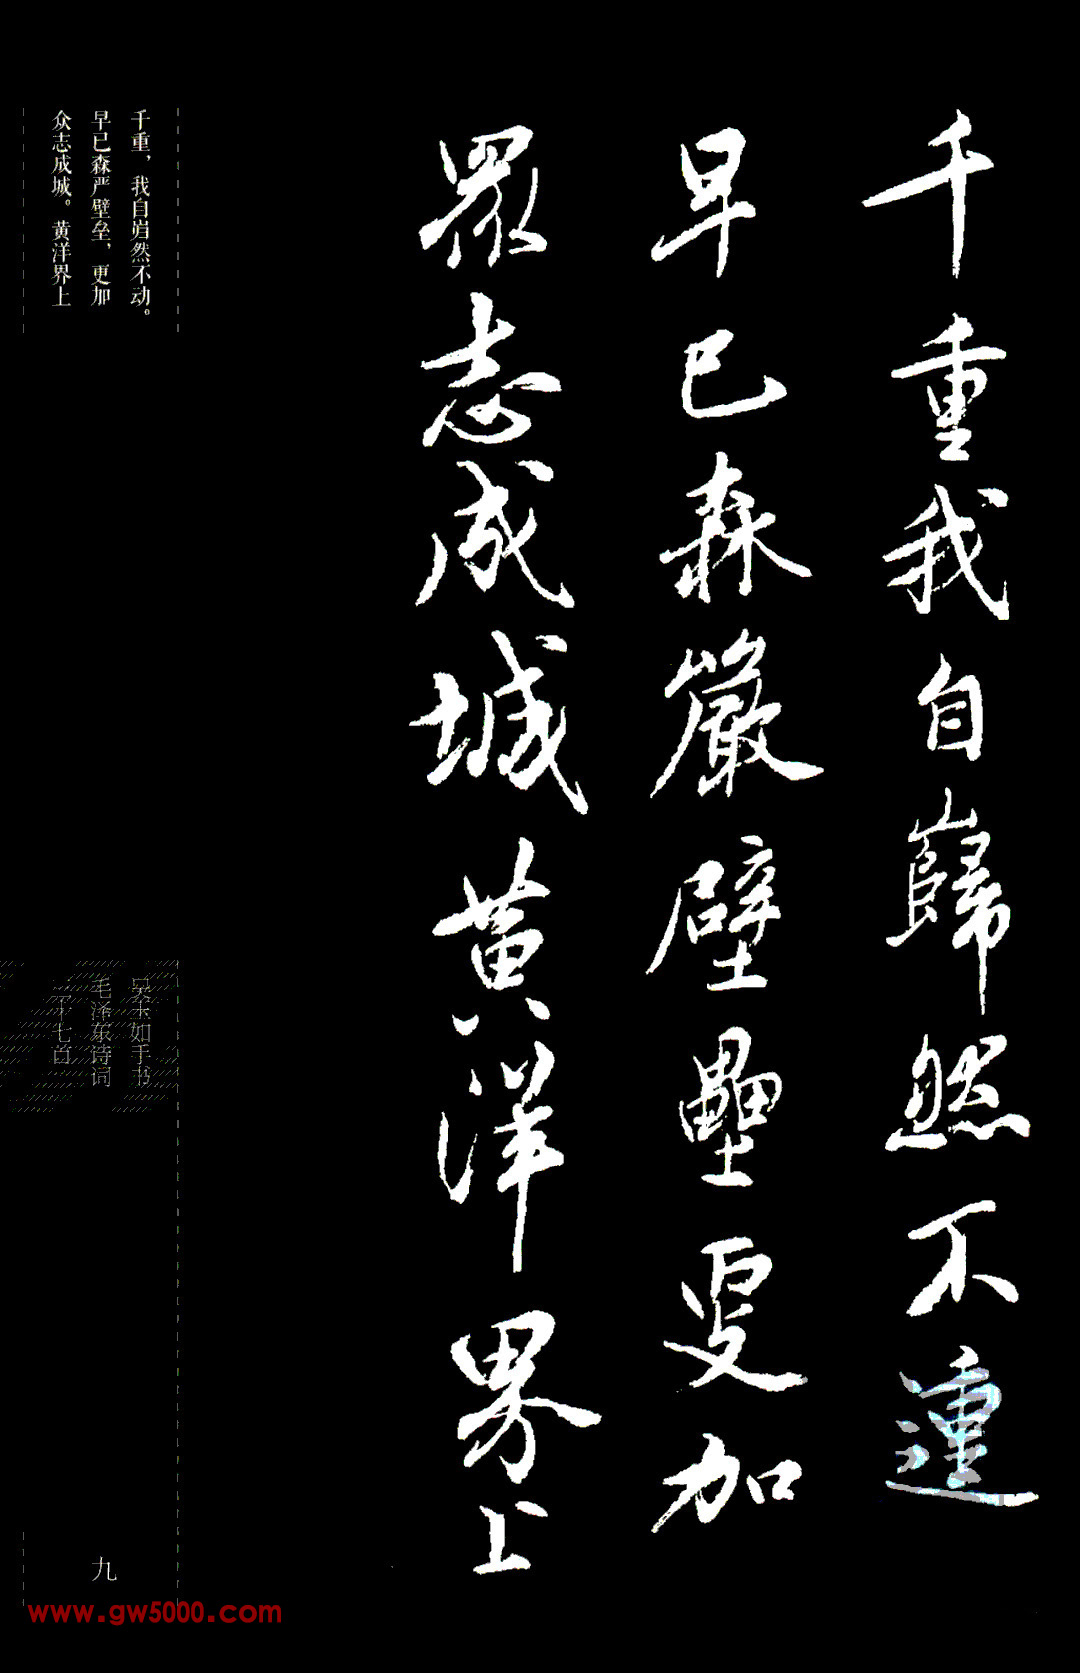 千重我自巋然不運
早已森嚴壁壘更加
眾志成城黃洋界上
千重，我自岿然不动。
早已森严壁垒，更加
众志成城。黄洋界上
吴玉如手书
毛泽东诗词
二十七首
九
www.gw5000.com